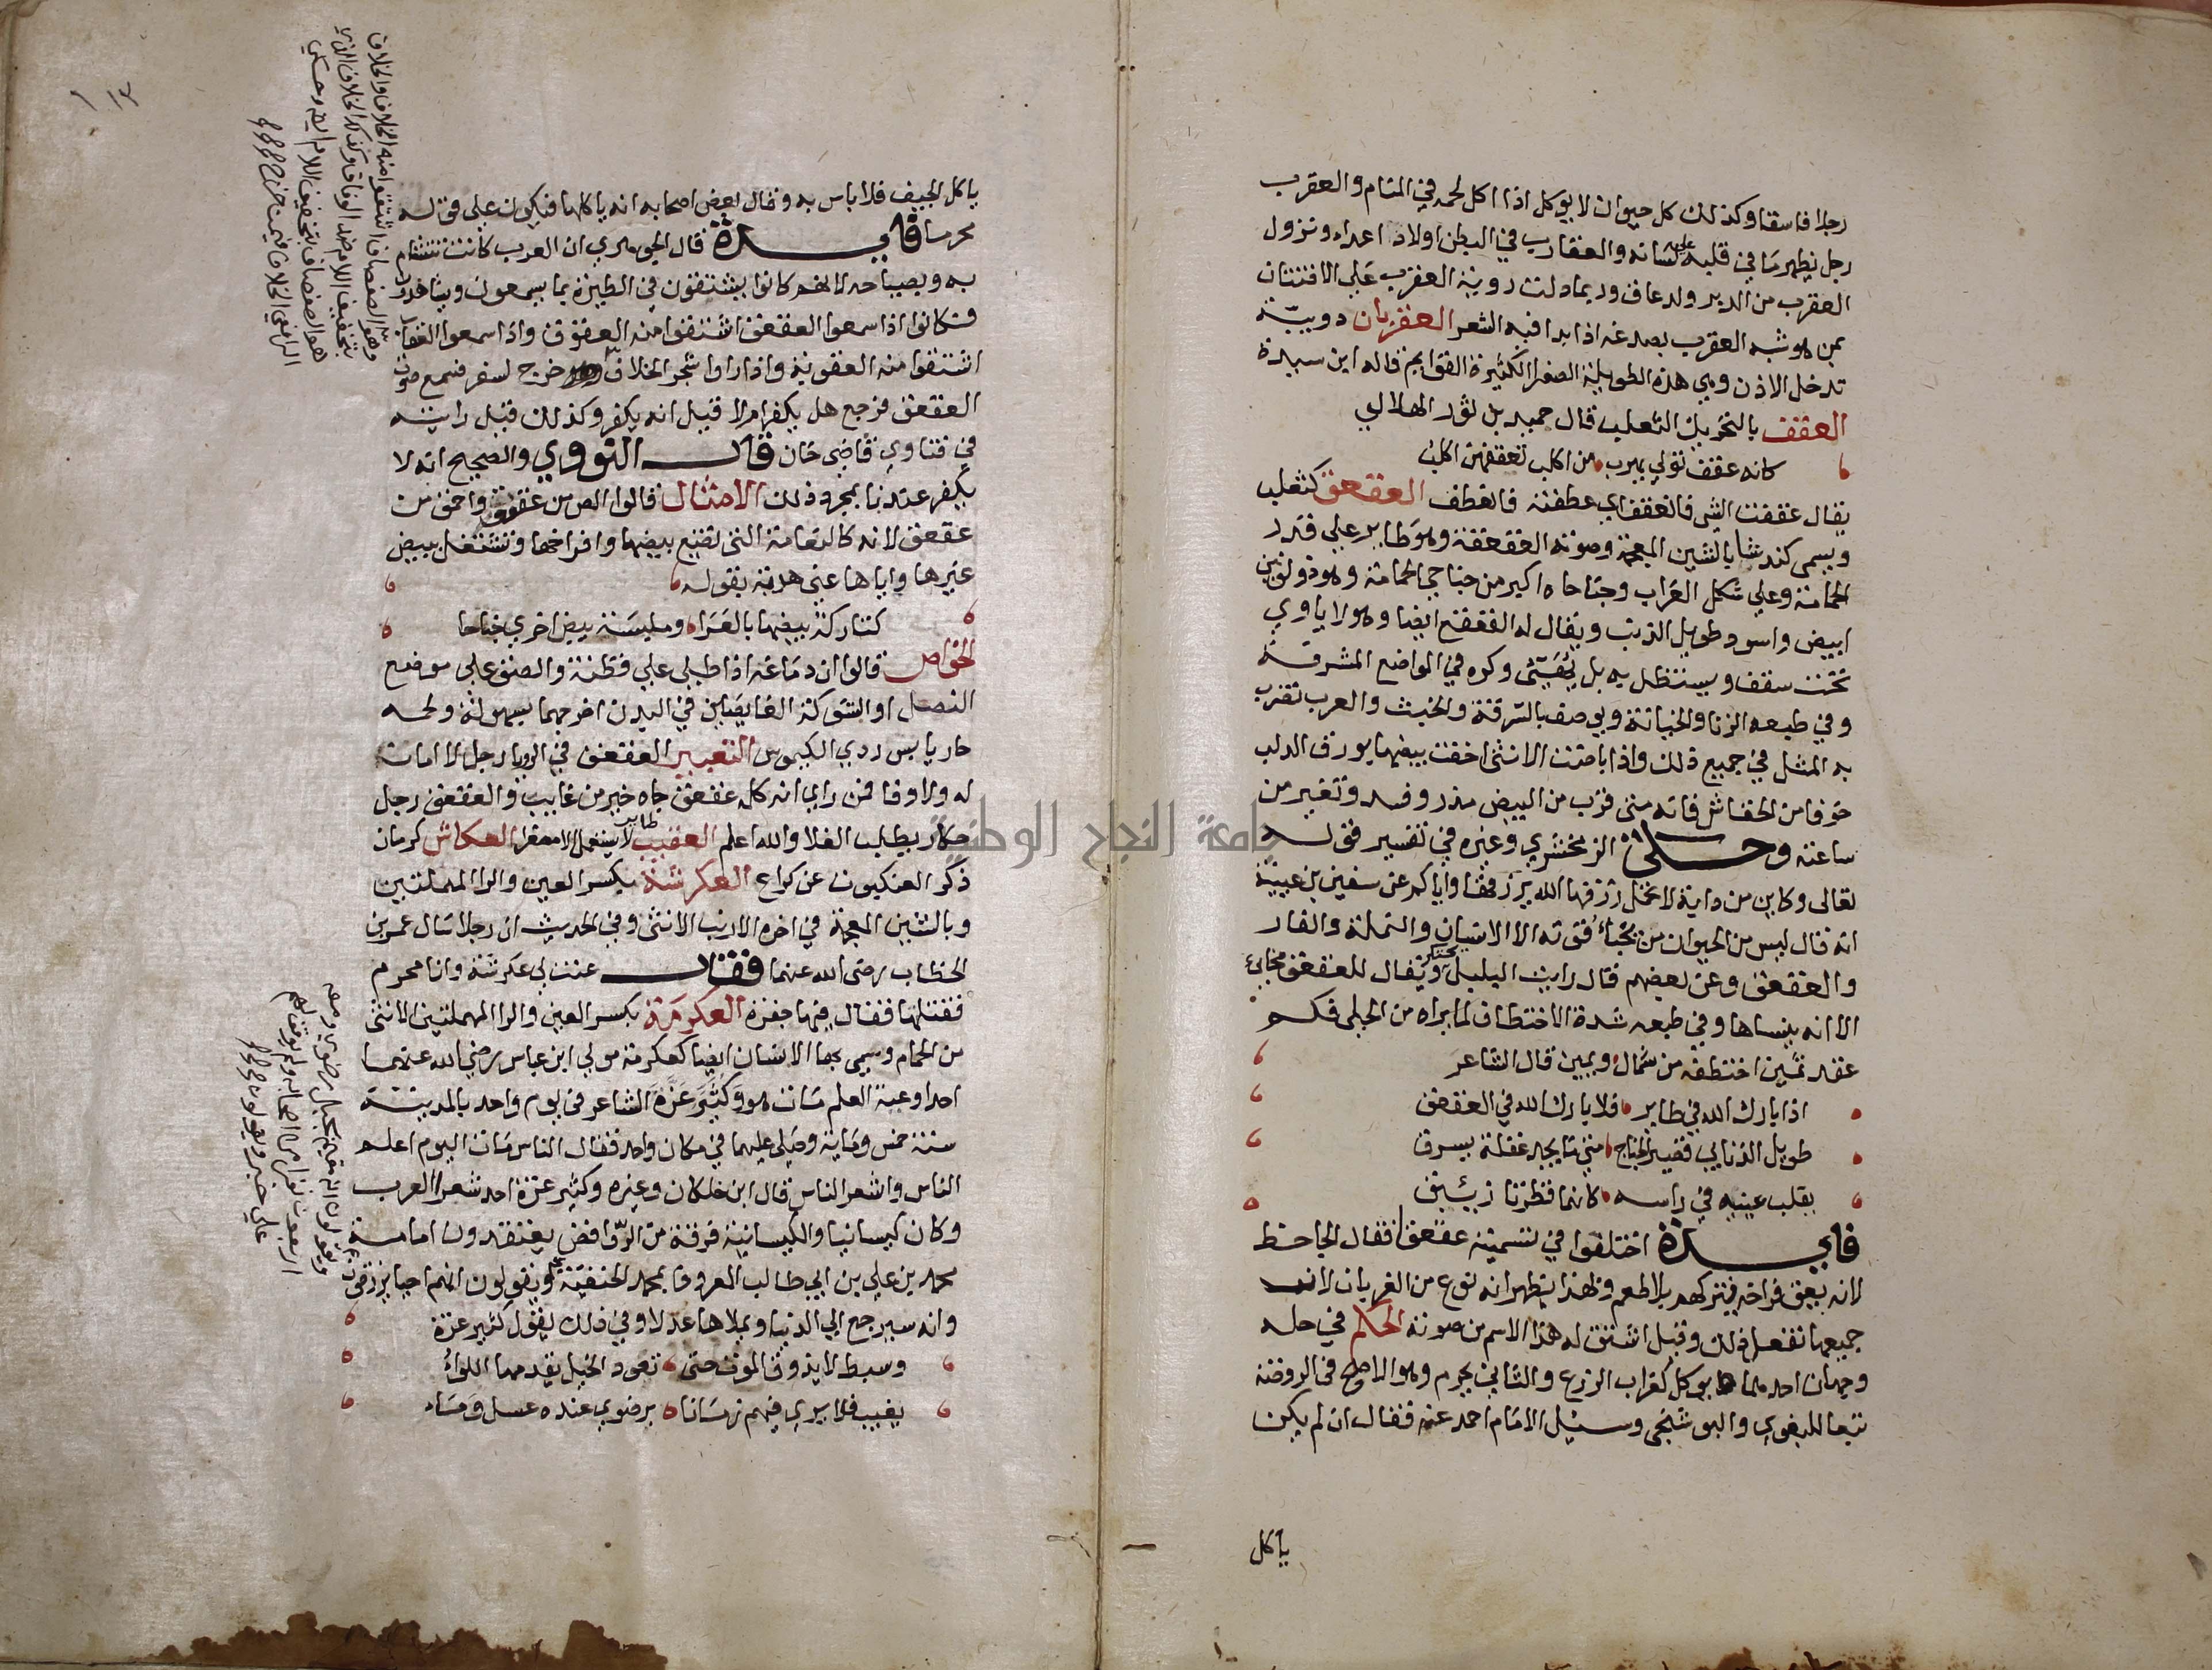 رجلا فاسقا وكذلك كل حيوان لا يوكل اذا اكل لحمه في المنام والعقرب
رجل يظهر ما في قلبه على لسانه والعقارب في البطن اولاد اعداء ونزول
العقرب من الدبر ولد عاق وربما دلت روية العقرب علي الافتتان
بمن هو شبه العقرب بصدغه اذا بدا فيه الشعر العقربان دويبّة
تدخل الاذن وهي هذه الطويلة الصفرا الكثيرة القوايم قاله ابن سيدة
العقف بالتحريك الثعلب قال حميد بن ثور الهلالي
كانه عقف تولي يهرب من اكلب تعقفهن اكلب
يقال عقفت الشي فانعقف اي عطفته فانعطف العقعق كثعلب
ويسمى كندشا بالشين المعجمة وصوته العقعقة وهو طاير علي قدر
الحمامة وعلي شكل الغراب وجناحاه اكبر من جناحي الحمامة وهو ذو لونين
ابيض واسود طويل الذنب ويقال له القعقع ايضا وهو لا ياوي
تحت سقف ويستظل به بل يُهَيّئ وكره في المواضع المشرفة
وفي طبعه الزنا والخيانة ويوصف بالسرقة والخبث والعرب تضرب
به المثل في جميع ذلك واذا باضت الانثى اخفت بيضها بورق الدلب
خوفا من الخفاش فانه متى قرب من البيض مذر وفسد وتغير من
ساعته وحكى الزمخشري وغيره في تفسير قوله
تعالى وكاين من دابة لا تحمل رزقها الله يرزقها واياكم عن سفين بن عيينة
انه قال ليس من الحيوان من يخبأ قوته الا الانسان والنملة والفار
والعقعق وعن بعضهم قال رايت البلبل يحتكر ويقال للعقعق مخابئ
الا انه ينساها وفي طبعه شدة الاختطاف لما يراه من الحلي فكم
عقد ثمين اختطفه من شمال ويمين قال الشاعر
اذا بارك الله في طاير فلا بارك الله في العقعق
طويل الذنابي قصير الجناح متى ما يجد غفلة يسرق
يقلب عينيه في راسه كانهما قطرتا زئبق
فايدة اختلفوا في تسميته عقعقا فقال الجاحظ
لانه يعق فراخه فيتركهم بلا طعم ولهذا يظهر انه نوع من الغربان لان
جميعها تفعل ذلك وقيل اشتق له هذا الاسم من صوته الحكم في حله
وجهان احدهما يوكل كغراب الزرع والثاني يحرم وهو الاصح في الروضة
تبعا للبغوي والبوشنجي وسئل الامام احمد عنه فقال ان لم يكن
ياكل
ياكل الجيف فلا باس به وقال بعض اصحابه انه ياكلها فيكون علي قوله
محرما فايدة قال الجوهري ان العرب كانت تتشام
به وبصياحه لانهم كانوا يشتقون في الطيرة بما يسمعون ويشاهدون
فكانوا اذا سمعوا العقعق اشتقوا منه العقوق واذا سمعوا العقاب
اشتقوا منه العقوبة واذا راوا شجر الخلاف خرج لسفر فسمع صوت
العقعق فرجع هل يكفر ام لا قيل انه يكفر وكذلك قيل رايته
في فتاوي قاضى خان قال النووي والصحيح انه لا
يكفر عندنا بمجرد ذلك الامثال قالوا الص من عقعق واحمق من
عقعق لانه كالنعامة التي تضيع بيضها وافراخها وتشتغل ببيض
غيرها واياها عنى هدبة بقوله
كتاركة بيضها بالعراء وملبسة بيض اخري جناحا
الخواص قالوا ان دماغه اذا طلي علي قطنة والصق علي موضع
النصل او الشوكة الغايصين في البدن اخرجهما بسهولة ولحمه
حار يابس ردي الكيموس التعبير العقعق في الرويا رجل لا امانة
له ولا وفا فمن راي انه كلمه عقعق جاه خبر من غايب والعقعق رجل
حكار يطلب الغلا والله اعلم العقيب طاير لا يستعمل الا مصغرا العكاش كرمان
ذكر العنكبوت عن كراع العكرشة بكسر العين والرا المهملتين
وبالشين المعجمة في اخره الارنب الانثى وفي الحديث ان رجلا سال عمر بن
الخطاب رضى الله عنهما فقال عنت لي عكرشة وانا محرم
فقتلتها فقال فيها جفرة العكرمة بكسر العين والرا المهملتين الانثى
من الحمام وسمي بها الانسان ايضا كعكرمة مولي ابن عباس رضي الله عنهما
احد اوعية العلم مات هو وكُثَيّر عَزّة الشاعر في يوم واحد بالمدينة
سنة خمس وماية وصَلى عليهما في مكان واحد فقال الناس مات اليوم اعلم
الناس واشعر الناس قال ابن خلكان وغيره وكثير عزة احد شعرا العرب
وكان كيسانيا والكيسانية فرقة من الرّوافض يعتقدون امامة
محمد بن علي بن ابي طالب المعروف بمحمد الحنفية ويقولون انهما حيا يرزقون
وانه سيرجع الي الدنيا ويملاها عدلا وفي ذلك يقول كثير عزة
وسبط لا يذوق الموت حتى تعود الخيل يقدمها اللواءُ
يغيب فلا يري فيهم زمانا برضوي عنده عسل وماء
وهو الصفصاف اشتقوا منه الخلاف والخلاف
بتخفيف اللام ضد الوفاق وكذلك الخلاف الذي
هو الصفصاف بتخفيف اللام ايضا وحكي
الرافعي الخلاف فيمن خرج
ويقولون انه مقيم بجبل رضوي ومعه
اربعون نفرا من اصحابه ولم يوقف لهم
علي خبر ويقولون